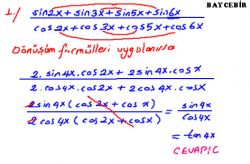 BAYCEBİR
1/ sin2x + sin3x + sin5x + sin6x
cos2x + cos3x + cos5x + cos6x
Dönüşüm formülleri uygulanırsa
2.sin4x.cos2x + 2sin4x.cosx
2.cos4x.cos2x + 2cos4x.cosx
2sin4x(cos2x + cosx) = sin4x
2cos4x(cos2x + cosx) cos4x
= tan4x
CEVAP: C